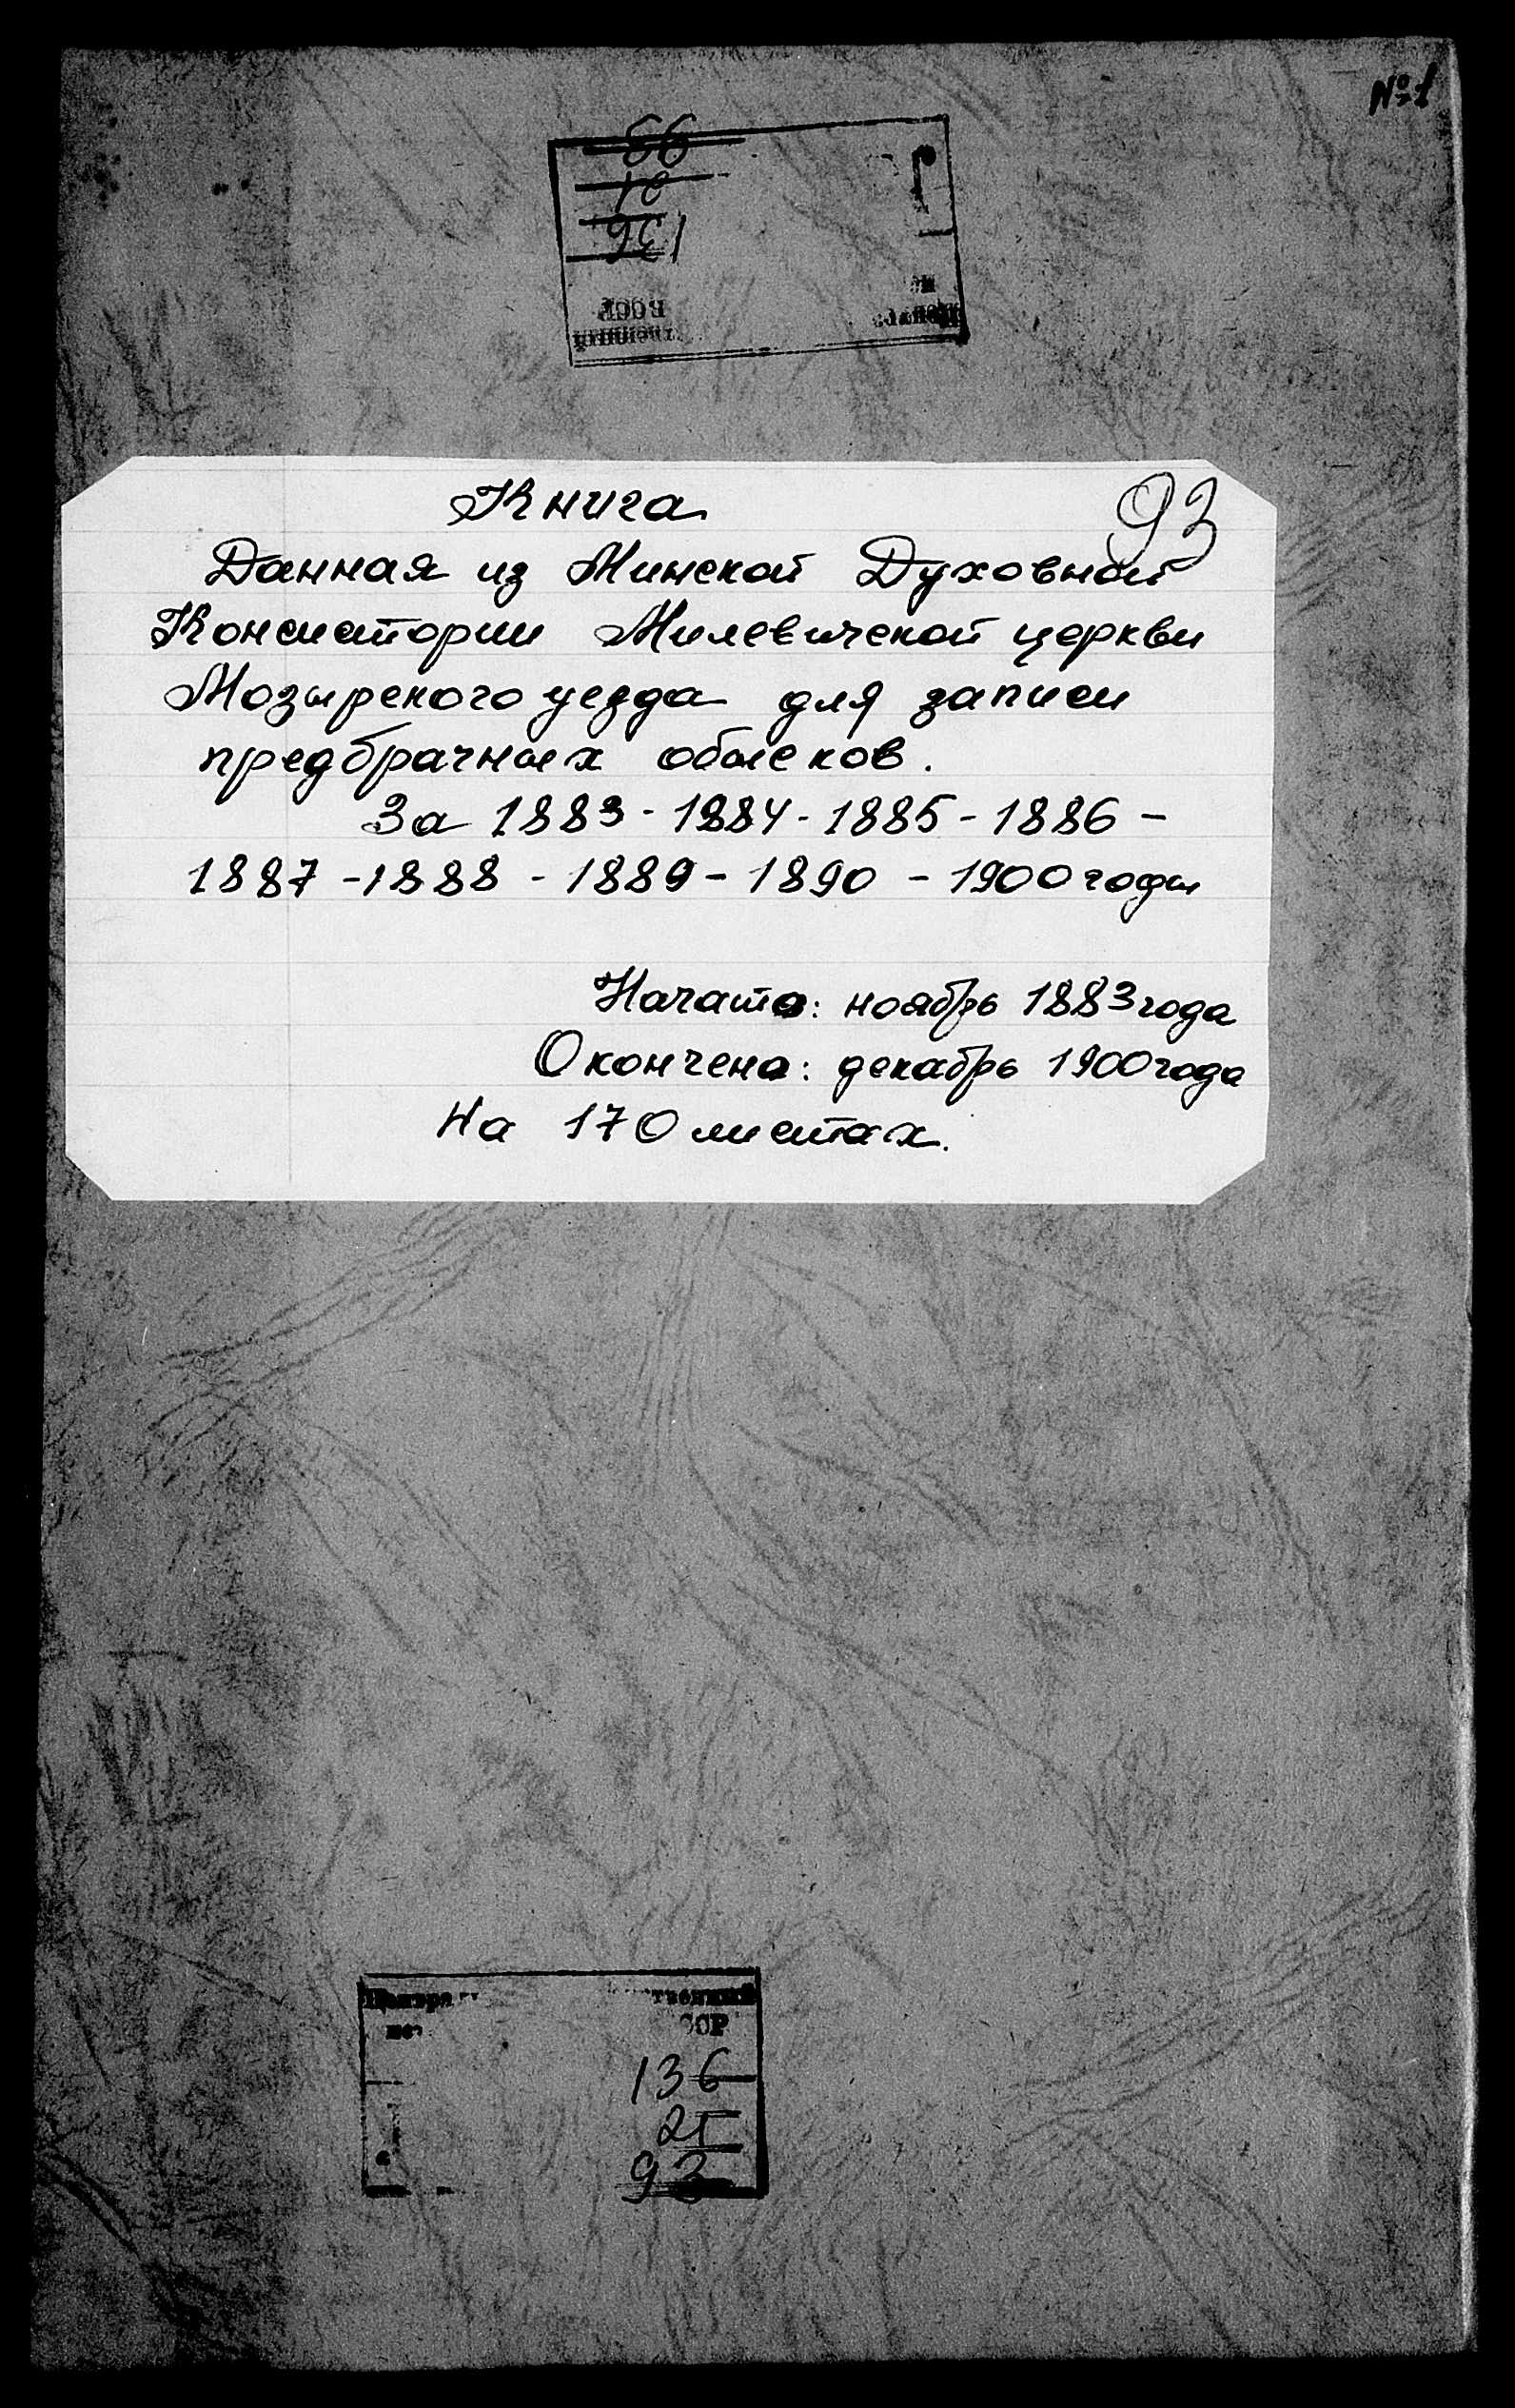 №1
66
136
Книга
93
Данная из Минской Духовной
Консистории Милевичской церкви
Мозырского уезда для записи
предбрачных обысков.
За 1883 - 1884 - 1885 - 1886 -
1887 - 1888 - 1889 - 1890 - 1900 годы
Начата: ноябрь 1883 года
Окончена: декабрь 1900 года
На 170 листах.
136
21
93